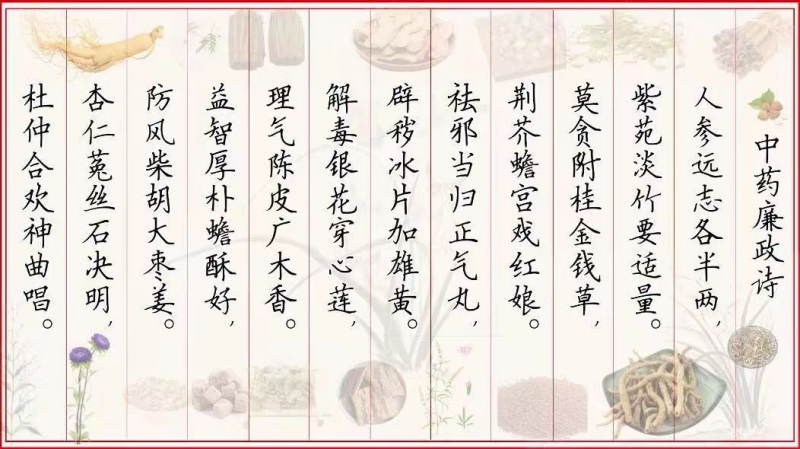 中药廉政诗
人参远志各半两，
紫苑淡竹要适量。
莫贪附桂金钱草，
荆芥蟾宫戏红娘。
祛邪当归正气丸，
辟秽冰片加雄黄。
解毒银花穿心莲，
理气陈皮广木香。
益智厚朴蟾酥好，
防风柴胡大枣姜。
杏仁菟丝石决明，
杜仲合欢神曲唱。